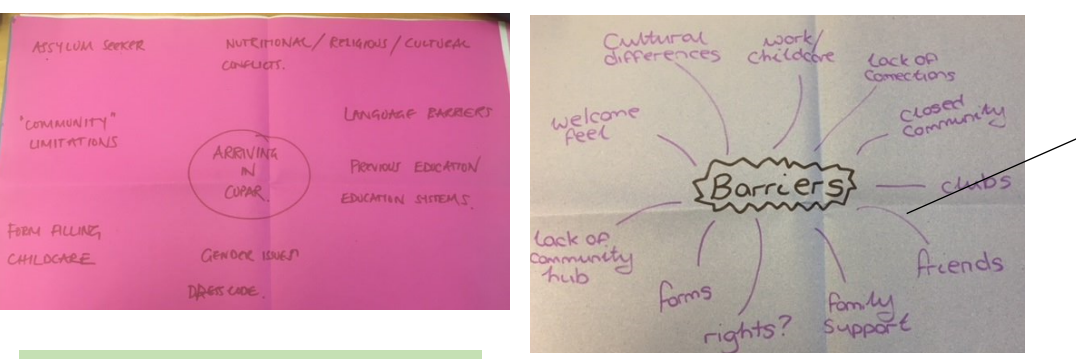 ASSYLUM SEEKER
NUTRITIONAL / RELIGIOUS / CULTURAL
CONFLICTS.
"COMMUNITY"
LIMITATIONS
LANGUAGE BARRIERS
ARRIVING
IN
CUPAR.
PREVIOUS EDUCATION
EDUCATION SYSTEMS.
FORM FILLING
CHILDCARE
GENDER ISSUES
DRESS CODE.
Cultural
differences
work/
childcare
lack of
connections
welcome
feel
closed
community
Barriers
clubs
lack of
community
hub
friends
forms
rights?
family
support